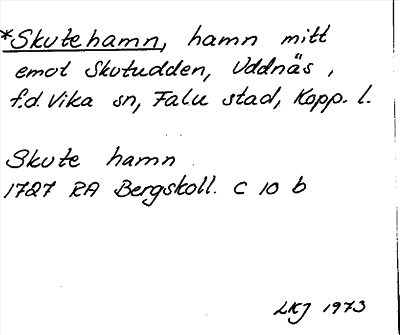 *Skutehamn, hamn mitt
emot Skutudden, Uddnäs,
f.d. Vika sn, Falu stad, Kopp. l.
Skute hamn
1727 RA Bergskoll. C 10 b
LKJ 1973